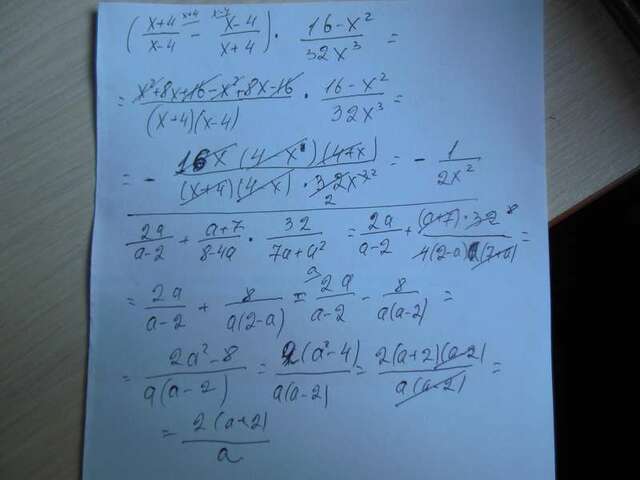 ( x+4/x-4 ^x+4 - x-4/x+4 ^x-4 ) · 16-x²/32x³ =
= x²+8x+16-x²+8x-16/(x+4)(x-4) · 16-x²/32x³ =
= - 16x(4-x)(4+x)/(x+4)(4-x)·32x³ x² 2 = - 1/2x²
2a/a-2 + a+7/8-4a · 32/7a+a² = 2a/a-2 + (a+7)·32 8/4(2-a)a(7+a) =
= 2a/a-2 + 8/a(2-a) = 2a ^a/a-2 - 8/a(a-2) =
= 2a²-8/a(a-2) = 2(a²-4)/a(a-2) = 2(a+2)(a-2)/a(a-2) =
= 2(a+2)/a